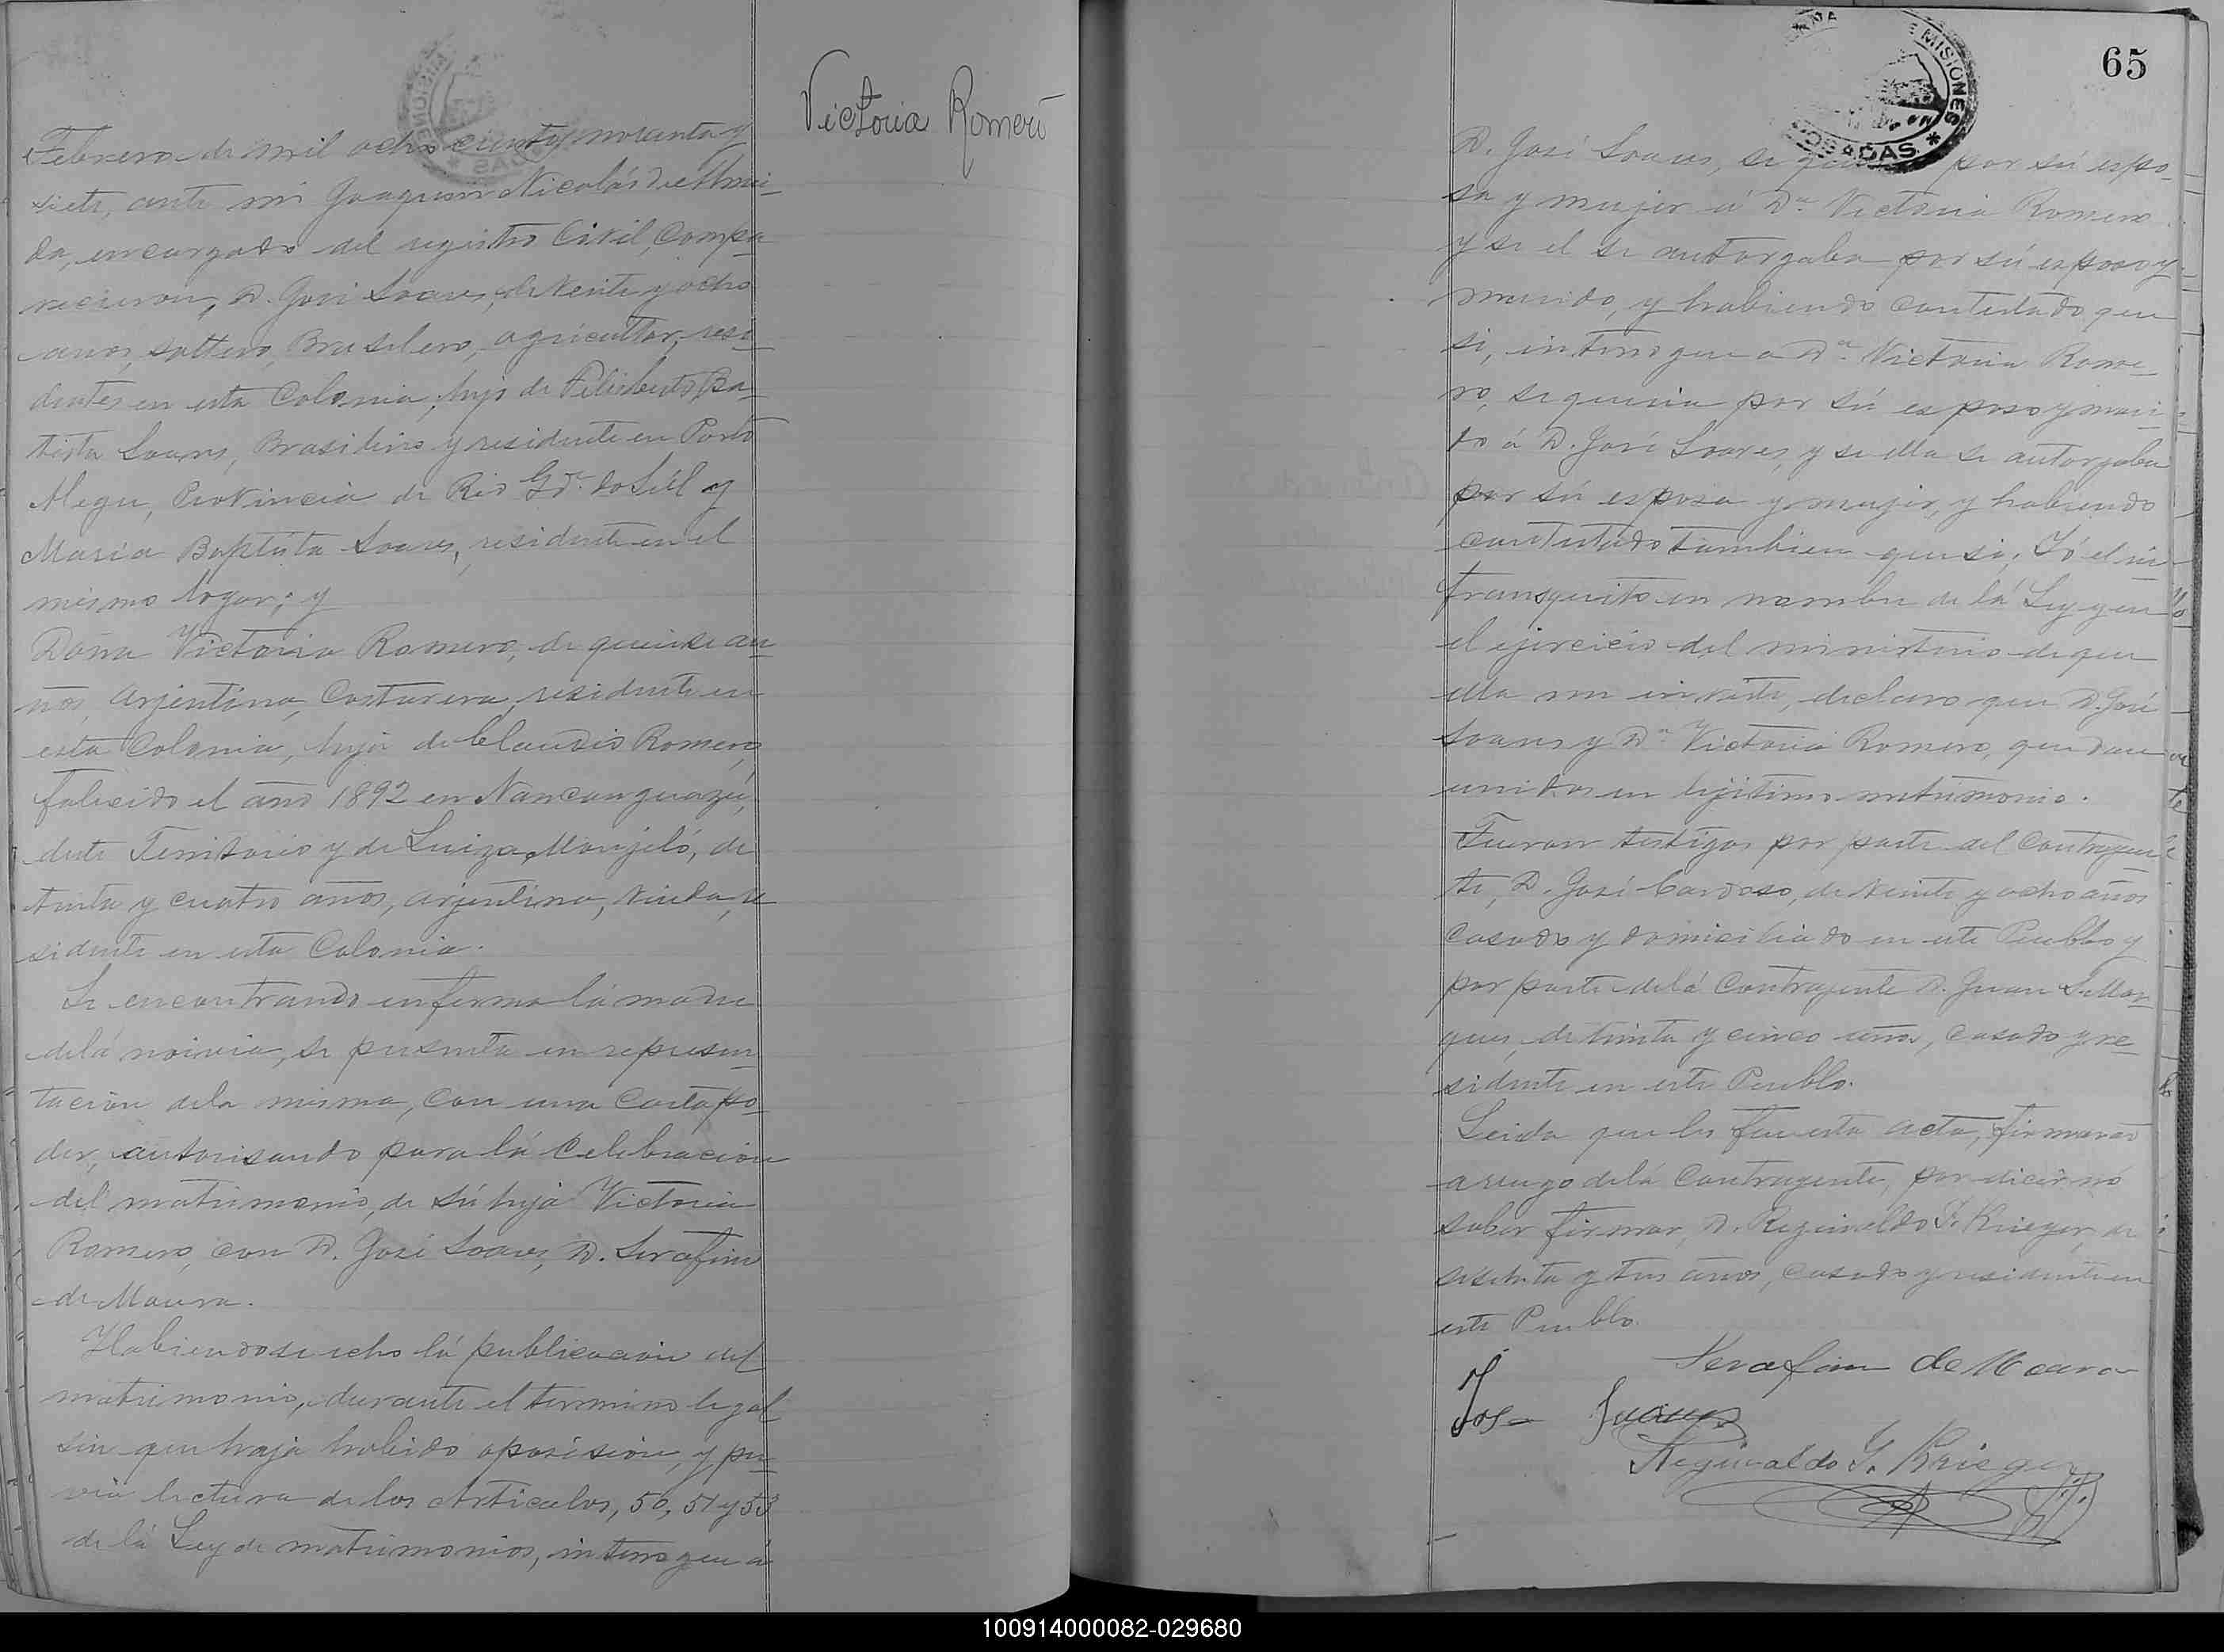 Victoria Romero
Febrero de mil ocho cientos noventa y
siete, ante mi Joaquin Nicolás de Almei-
da, encargado del registro Civil, Compa-
recieron, D. José Soares, de Veinte y ocho
anos, soltero, Brasilero, agricultor, resi-
dentes en esta Colonia, hijo de Filisberto Ba-
tista Soares, Brasileiro y residente en Porto
Alegre, Provincia de Rio Gde. do Súl y
Maria Baptista Soares, residente en el
mesmo logar; y
Doña Victoria Romero, de quinse an-
nos, Arjentina, Costurera, residente en
esta Colonia, hija de Claudio Romero,
falecido el año 1892 en Ñancanguazú,
deste Territorio y de Luiza Monjeló, de
trinta y cuatro años, arjentina, viuda, re-
sidente en esta Colonia.
Se encontrando enferma lá madre
delá noivia, se presenta en represen-
tacion dela misma, con una Carta po-
der, autorisando para lá Celebracion
del matrimonio, de sú hija Victoria
Romero, con D. José Soares, D. Serafim
de Moura.
Habiendose echo lá publicacion del
matrimonio, durante el termino legal
sin que haja habido oposision, y pre-
via lectura de los Articulos, 50, 51 y 53
de lá Ley de matrimonios, interrogue á
65
MISIONES
POSADAS
D. José Soares, se por sú espo-
sa y mujer á Da. Victoria Romero
y se el se autorgaba por sú esposo y
marido, y habiendo contestado que
si, interrogue a Da. Victoria Rome-
ro, se queria por sú esposo y mari-
do á D. José Soares, y se ella se autorgaba
por sú esposa y mujer, y habiendo
contestado tambien que si; Yó el in-
franscrito en nombre de lá Ley y en
el ejercicio del ministerio de que
ella me inviste, declaro que D. José
Soares y Da. Victoria Romero, quedan
unidos en lijitimo matrimonio.
Fueron testigos por parte del Contrayen-
te, D. José Cardoso, de Veinte y ocho años
Casado y domisiliado en este Pueblo y
por parte delá Contrayente D. Juan S. Mar-
ques, de trinta y cinco anos, casado y re-
sidente en este Pueblo.
Leida que les fue esta acta, firmaron
a ruego delá Contrayente, por dicir nó
saber firmar, D. Reginaldo G. Krieger, de
sesenta y tres años, casado y residente en
este Pueblo.
Serafim de Moura
Jose Suares
Reginaldo G. Krieger
100914000082-029680